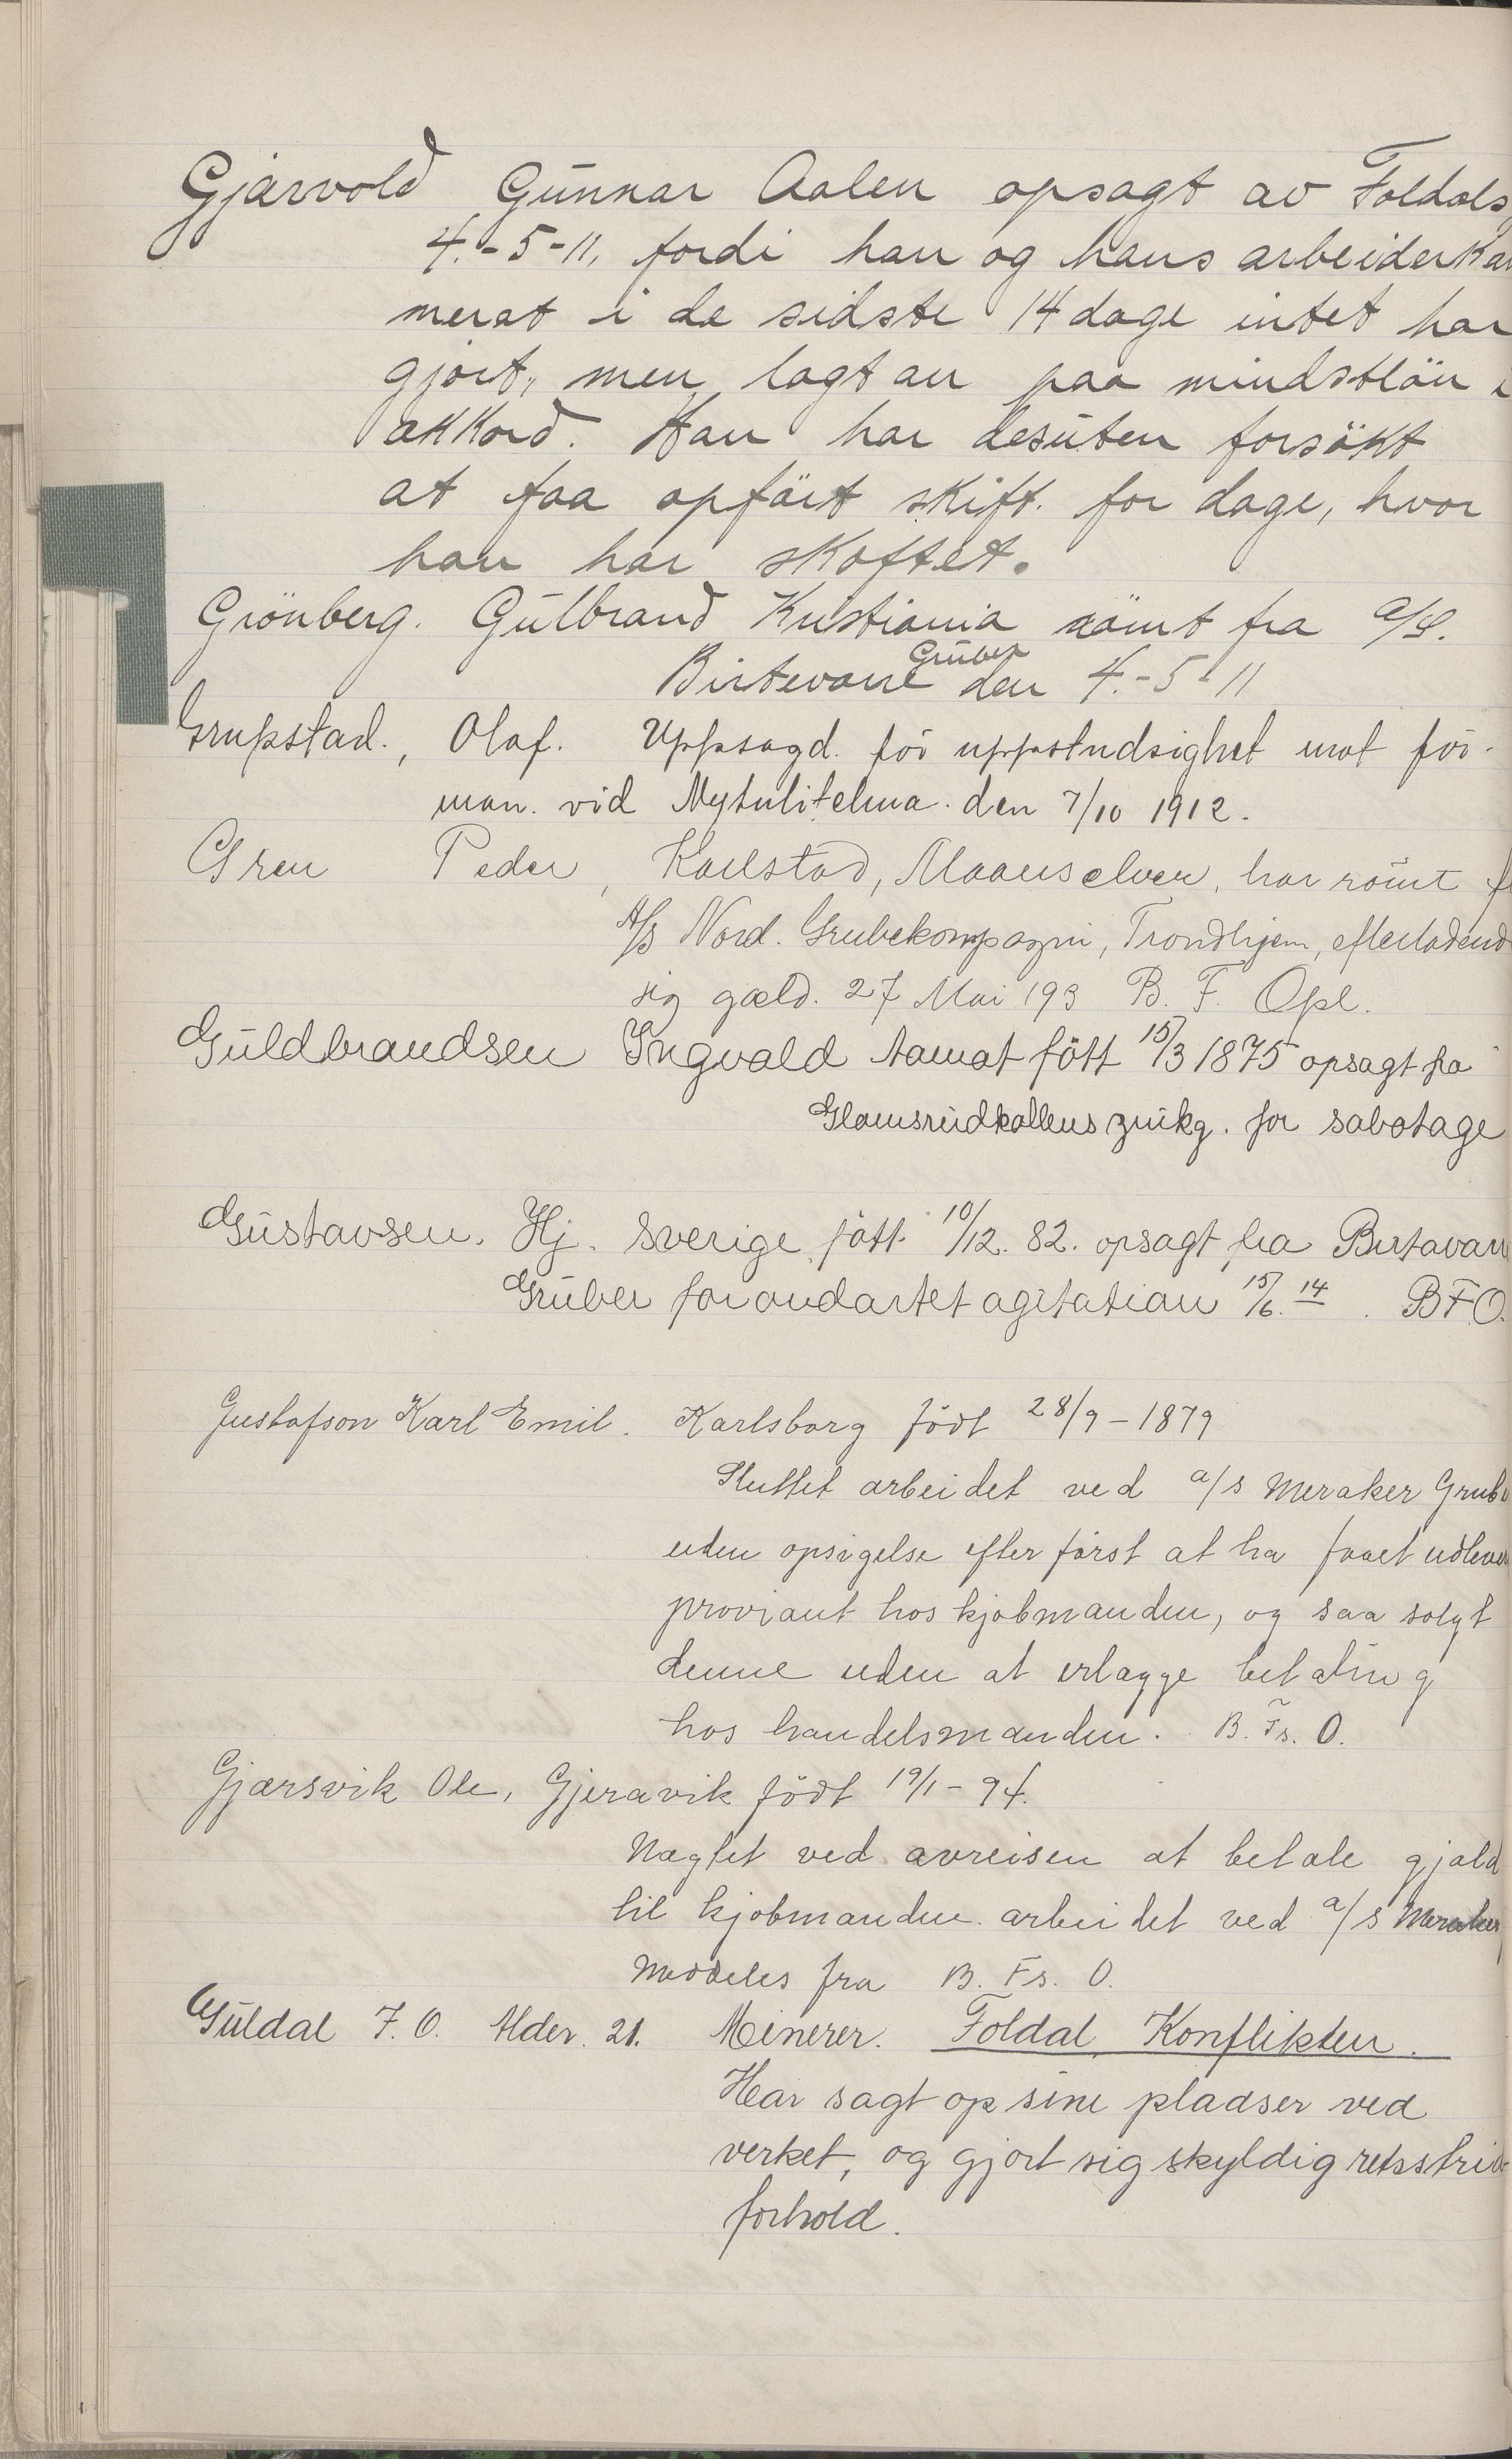 Gjärvold Gunnar Aalen opsagt av Foldals
4.-5-11, fordi han og hans arbeiderka
merat i de sidste 14 dage intet har
gjort, men lagt an paa mindstlön i
akkord. Han har desuten forsökt
at faa opfört skift. for dage, hvor
han har skoftet.
Grönberg. Gulbrand Kristiania römt fra a/S.
Birtevarre Gruber den 4.-5-11
Olof. Uppsagd för uppstudsighet mot för-
man. vid den 7/10 1912.
Gren Peder, Karlstad, Maanselven, har römt f
A/S Nord. Grubekompagni, Trondhjem, efterladend
sig gæld. 27 Mai 193 B. F. Opl.
Guldbrandsen Ingvald fött 15/3 1875 opsagt fra
Glomsrudkollens zinkg. for sabotage
Gustavsen. Hj. Sverige fött 10/12. 82. opsagt fra Birtavarr
Gruber for ondartet agitation 15/6. 14. BFO.
Gustafson Karl Emil. Karlsborg födt 28/9-1879
Sluttet arbeidet ved a/s Meraker Grube
uden opsigelse efter först at ha faaet udlever
proviant hos kjobmanden, og saa solgt
denne uden at erlægge betaling
hos handelsmanden. B. Fs. O.
Gjærsvik Ole, Gjeravik födt 19/1-94.
Nægtet ved avreisen at betale gjæld
til kjobmanden. arbeidet ved a/s Meraker
Meddeles fra B. Fs. O.
Guldal J. O. Alder. 21. Minerer. Foldal Konflikten.
Har sagt op sine pladser ved
verket, og gjort sig skyldig retsstrid
forhold.